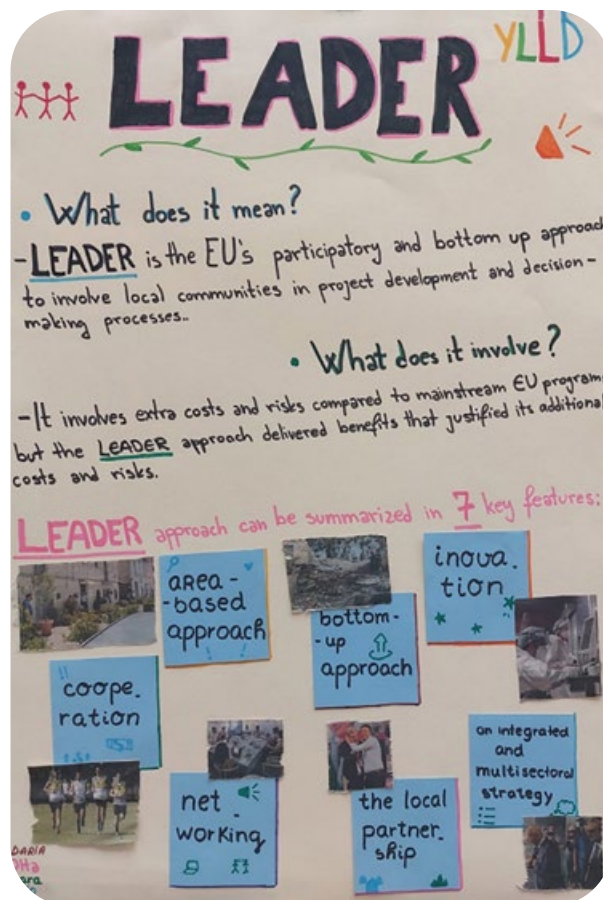 LEADER
YLLD
• What does it mean?
-LEADER is the EU's participatory and bottom up approach
to involve local communities in project development and decision-
making processes..
• What does it involve?
-It involves extra costs and risks compared to mainstream EU program
but the LEADER approach delivered benefits that justified its additional
costs and risks.
LEADER approach can be summarized in 7 key features:
area-
-based
approach
bottom-
-up
approach
inova.
tion
coope.
ration
net
working
the local
partner.
ship
an integrated
and
multisectoral
strategy
DARIA